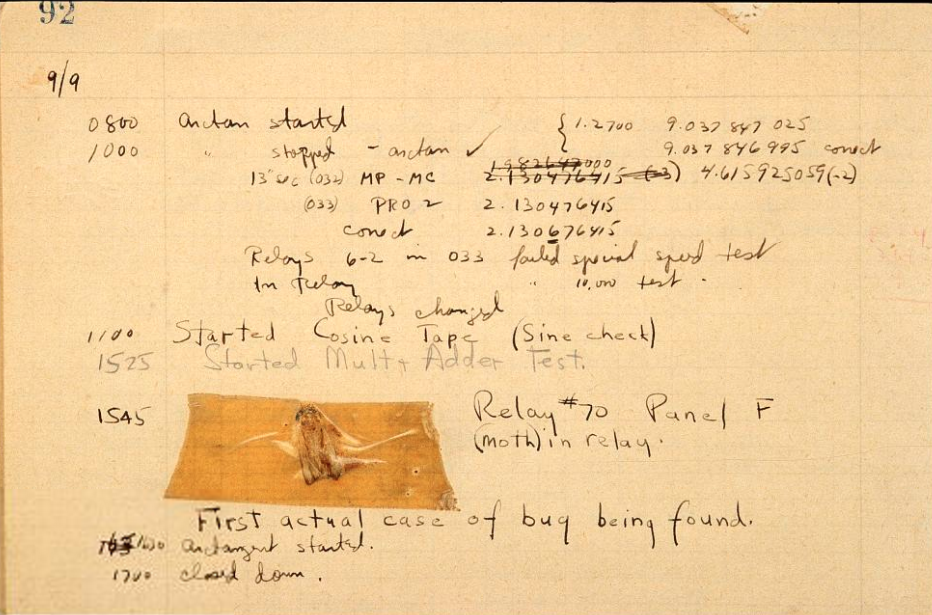 92
9/9
0800 Arctan started { 1.2700 9.037 847 025
1000 " stopped - arctan ✓ 9.037 846 995 conect
13"sec (032) MP - MC 2.130476415 (-3) 4.615925059(-2)
(033) PRO 2 2.130476415
conect 2.130676415
Relays 6-2 in 033 failed special speed test
In Relay " 10,000 test .
Relays changed
1100 Started Cosine Tape (Sine check)
1525 Started Mult+ Adder Test.
1545 Relay #70 Panel F
(moth) in relay.
First actual case of bug being found.
1630 arctangent started.
1700 closed down.